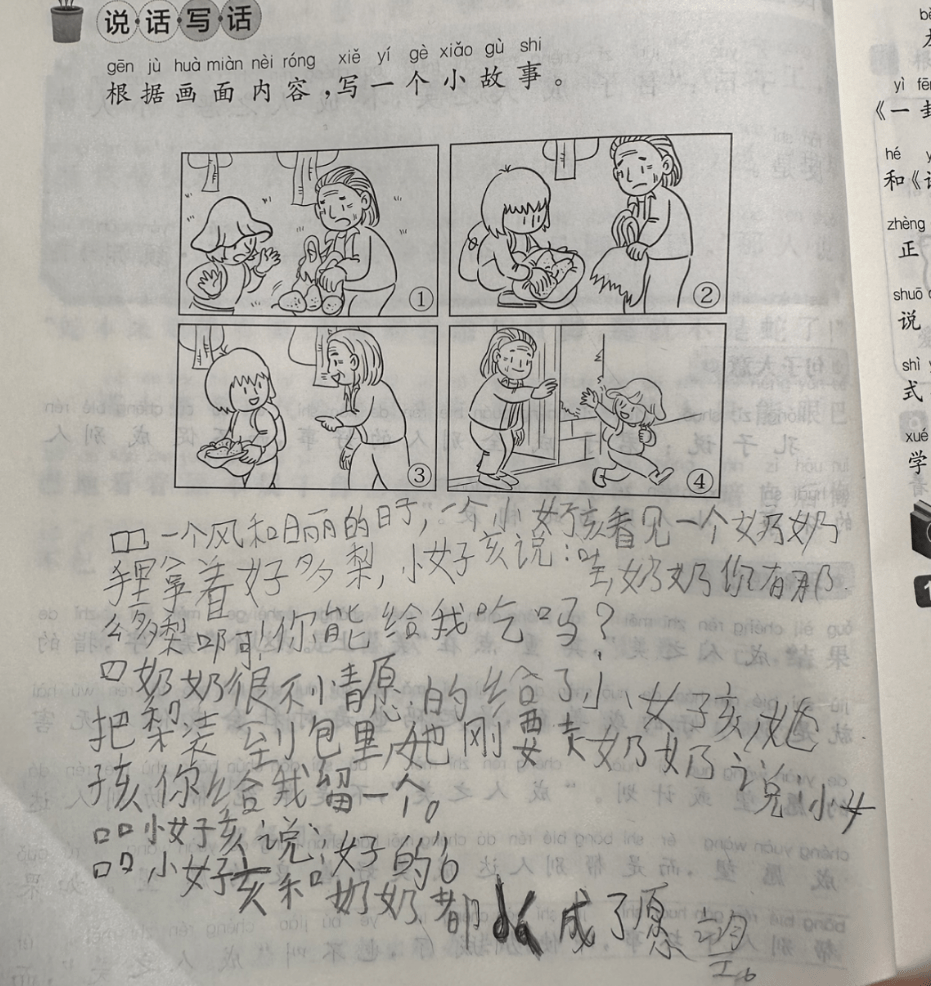 说话写话
gēn jù huà miàn nèi róng xiě yí gè xiǎo gù shi
根据画面内容,写一个小故事。
①
②
③
④
一个风和日丽的日子,一个小女孩看见一个奶奶
拿着好多梨,小女孩说:哇,奶奶你有那
么多梨 你能给我吃吗?
奶奶很不情愿的给了小女孩,她
把梨装到包里,她刚要走奶奶说:小女
孩你给我留一个。
小女孩说:好的。
小女孩和奶奶都 成了愿望。
bě
yì fēn
《一封
hé y
和《讠
zhèng
正
shuō
说
shì
式
xué
学
1